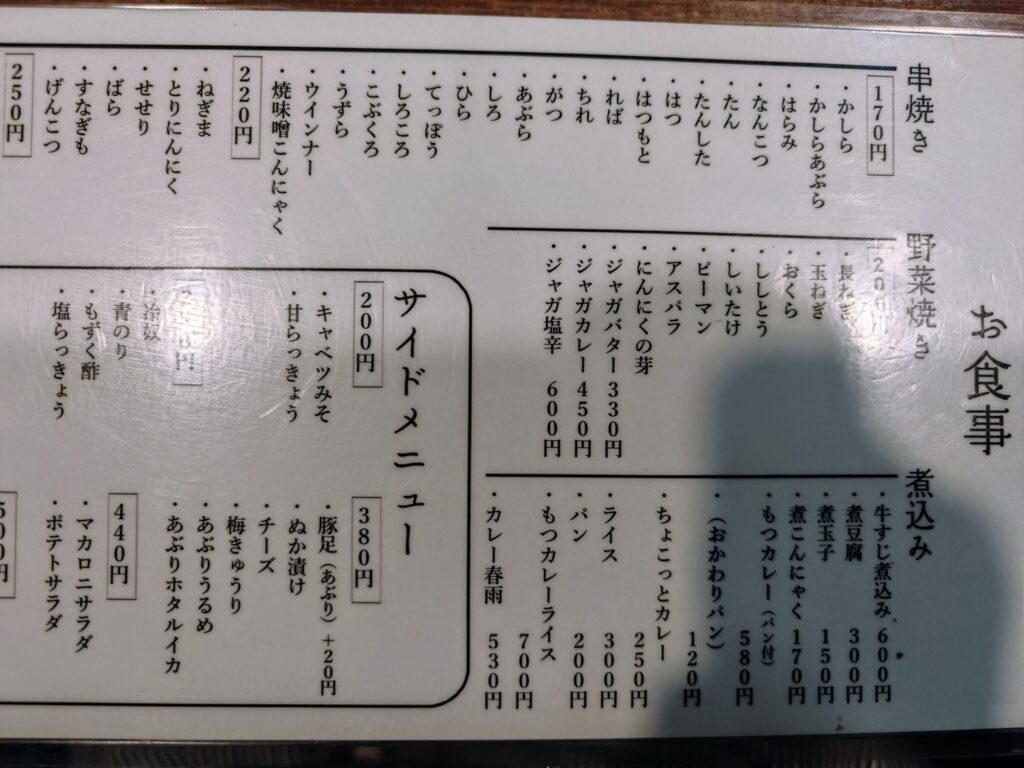 お食事
串焼き
170円
・かしら
・かしらあぶら
・はらみ
・なんこつ
・たん
・たんした
・はつ
・はつもと
・ればー
・ちれ
・がつ
・あぶら
・しろ
・ひら
・てっぽう
・しろころ
・こぶくろ
・うずら
・ウインナー
・焼味噌こんにゃく
220円
・ねぎま
・とりにんにく
・せせり
・ばら
・すなぎも
・げんこつ
250円
野菜焼き
200円
・長ねぎ
・玉ねぎ
・おくら
・ししとう
・しいたけ
・ピーマン
・アスパラ
・にんにくの芽
・ジャガバター 330円
・ジャガカレー 450円
・ジャガ塩辛 600円
煮込み
・牛すじ煮込み 600円
・煮豆腐 300円
・煮玉子 150円
・煮こんにゃく 170円
・もつカレー（パン付） 580円
（おかわりパン） 120円
・ちょこっとカレー 250円
・ライス 300円
・パン 200円
・もつカレーライス 700円
・カレー春雨 530円
サイドメニュー
200円
・キャベツみそ
・甘らっきょう
・冷奴
・青のり
・もずく酢
・塩らっきょう
380円
・豚足（あぶり）+20円
・ぬか漬け
・チーズ
・梅きゅうり
・あぶりうるめ
・あぶりホタルイカ
440円
・マカロニサラダ
・ポテトサラダ